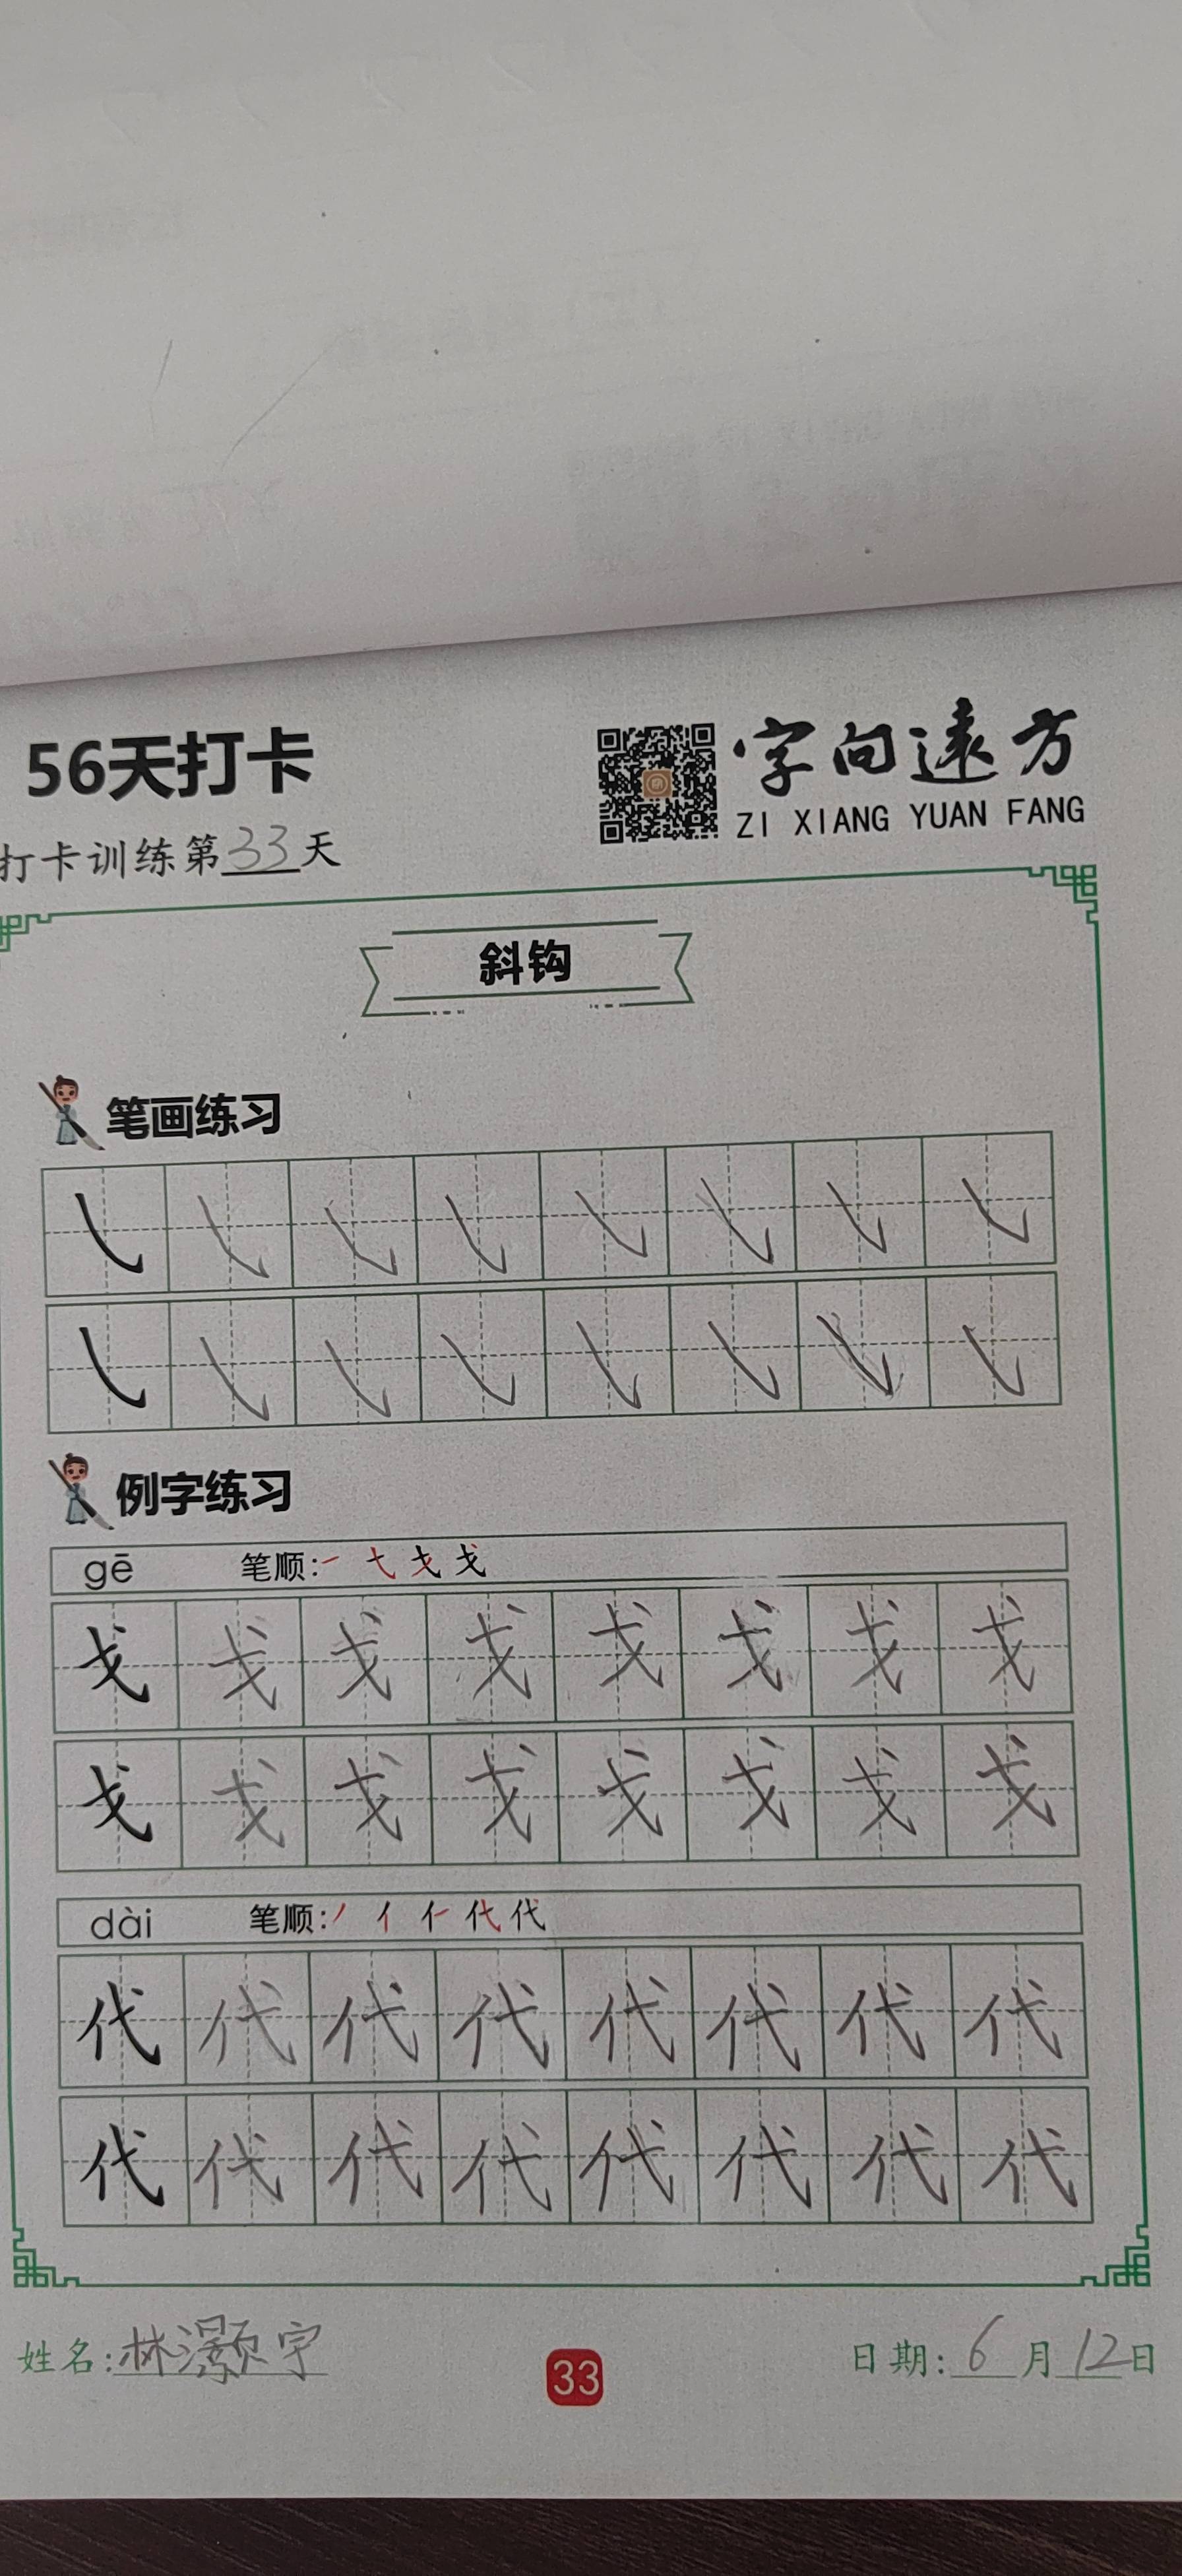 56天打卡
字向遠方
ZI XIANG YUAN FANG
打卡训练第33天
斜钩
笔画练习
㇂ ㇂ ㇂ ㇂ ㇂ ㇂ ㇂ ㇂
㇂ ㇂ ㇂ ㇂ ㇂ ㇂ ㇂ ㇂
例字练习
gē 笔顺:
戈 戈 戈 戈 戈 戈 戈 戈
戈 戈 戈 戈 戈 戈 戈 戈
dài 笔顺:
代 代 代 代 代 代 代 代
代 代 代 代 代 代 代 代
姓名:林灏宇
33
日期:6月12日